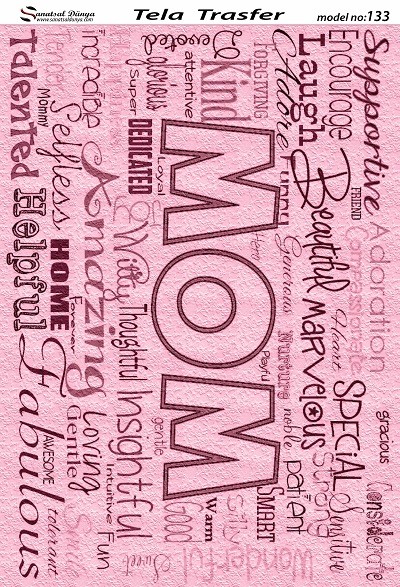 Sanatsal Dünya
www.sanatsaldunya.com
Tela Trasfer
model no:133
Supportive
Adoration
gracious
Considerate
Encourage
FRIEND
Compassionate
Heart
SPECiAL
Sensitive
Laugh
Beautiful
MARVELOUS
Strong
FORGIVING
Adore
Funny
Generous
Nurture
noble
patient
Kind
MOM
Playful
SMART
Wonderful
Devoted
attentive
Loyal
gentle
Silly
Warm
glorious
Super
DEDICATED
Witty
Thoughtful
Insightful
GOOD
Sweet
Incredible
Amazing
Loving
Intuitive
Fun
Mommy
Selfless
HOME
Forever
Gentle
Smile
Talented
Helpful
Fabulous
AWESOME
tolerant